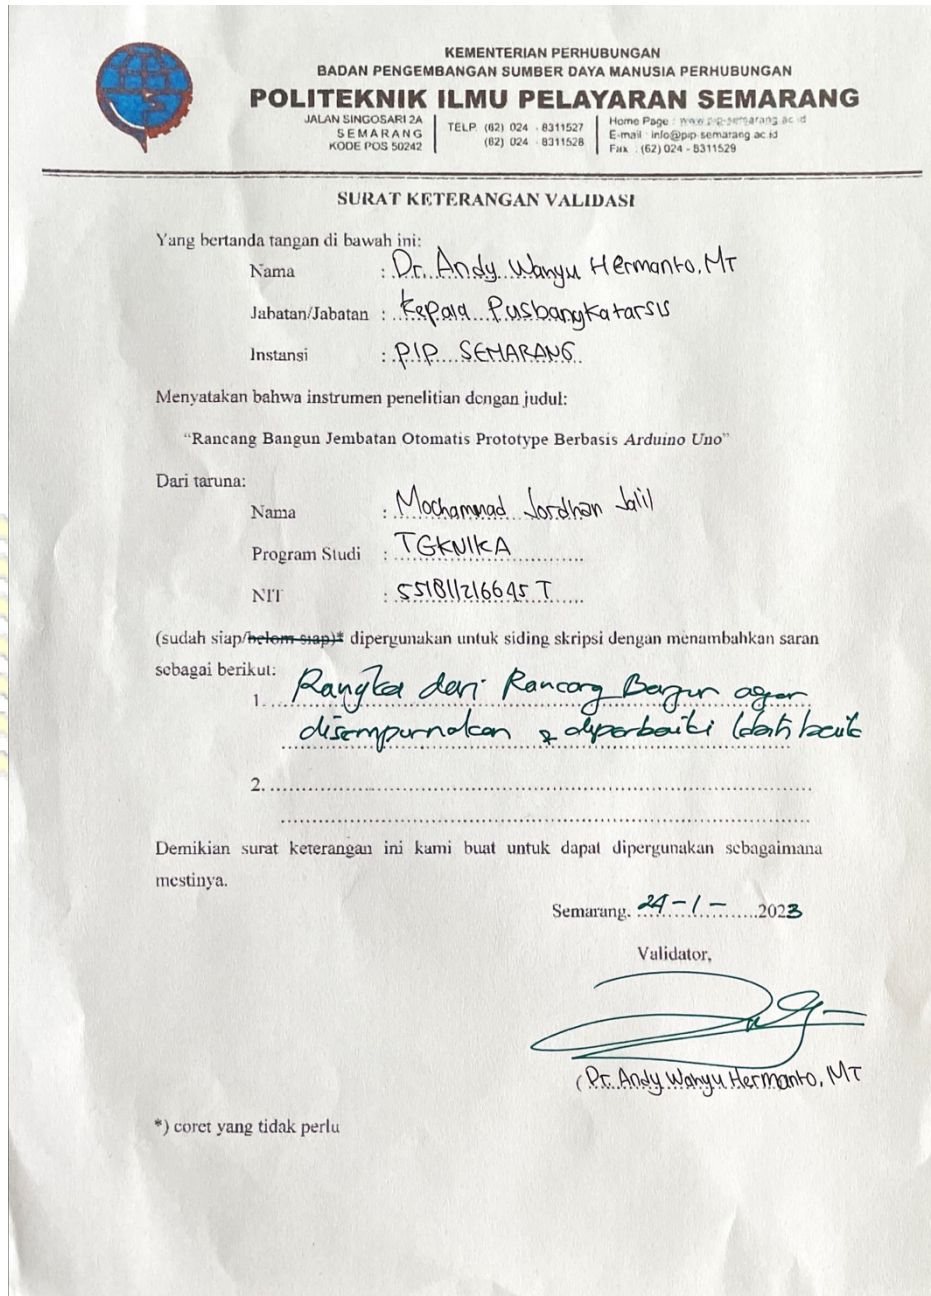 KEMENTERIAN PERHUBUNGAN
BADAN PENGEMBANGAN SUMBER DAYA MANUSIA PERHUBUNGAN
POLITEKNIK ILMU PELAYARAN SEMARANG
JALAN SINGOSARI 2A
SEMARANG
KODE POS 50242
TELP. (62) 024 - 8311527
(62) 024 - 8311528
Home Page : www.pip-semarang.ac.id
E-mail : info@pip-semarang.ac.id
Fax : (62) 024 - 8311529
SURAT KETERANGAN VALIDASI
Yang bertanda tangan di bawah ini:
Nama : Dr. Andy Wahyu Hermanto, MT
Jabatan/Jabatan : Kepala Pusbangkatarsis
Instansi : PIP SEMARANG
Menyatakan bahwa instrumen penelitian dengan judul:
“Rancang Bangun Jembatan Otomatis Prototype Berbasis Arduino Uno”
Dari taruna:
Nama : Mochammad Jordhan Jalil
Program Studi : TEKNIKA
NIT : 551811216645 T
(sudah siap/belom siap)* dipergunakan untuk siding skripsi dengan menambahkan saran
sebagai berikut:
1. Rangka dari Rancang Bangun agar
disempurnakan & diperbaiki lebih baik
2.
Demikian surat keterangan ini kami buat untuk dapat dipergunakan sebagaimana
mestinya.
Semarang. 24 - 1 - 2023
Validator,
(Dr. Andy Wahyu Hermanto, MT
*) coret yang tidak perlu